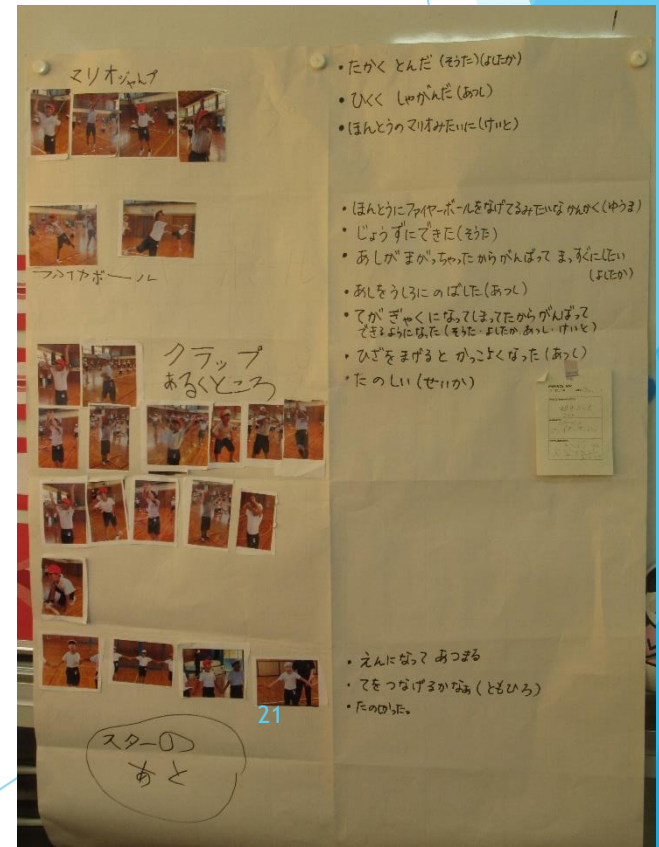 1
マリオジャンプ
・たかく とんだ (そうた)(よしたか)
・ひくく しゃがんだ (あつし)
・ほんとうのマリオみたいに (けいと)
ファイヤボール
・ほんとうにファイヤーボールをなげてるみたいな かんかく (ゆうま)
・じょうずにできた (そうた)
・あしが まがっちゃったからがんばって まっすぐにしたい
(よしたか)
・あしをうしろに のばした (あつし)
クラップ
あるくところ
・てが ぎゃくになってしまってたからがんばって
できるようになった (そうた・よしたか・あつし・けいと)
・ひざをまげると かっこよくなった (あつし)
・たのしい (せいか)
・えんになって あつまる
・てをつなげるかなぁ (ともひろ)
・たのしかった。
21
スターの
あと